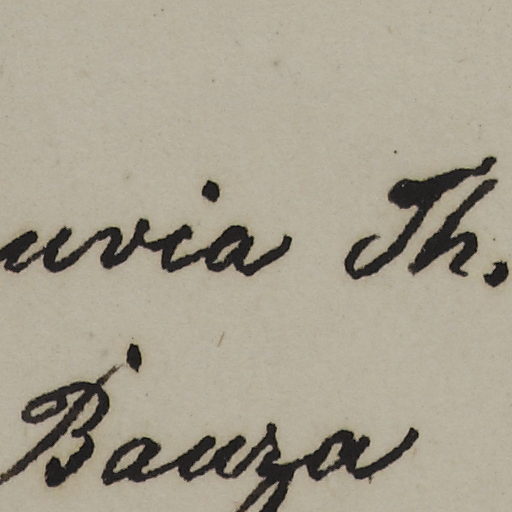 uvia Th.
Bauza